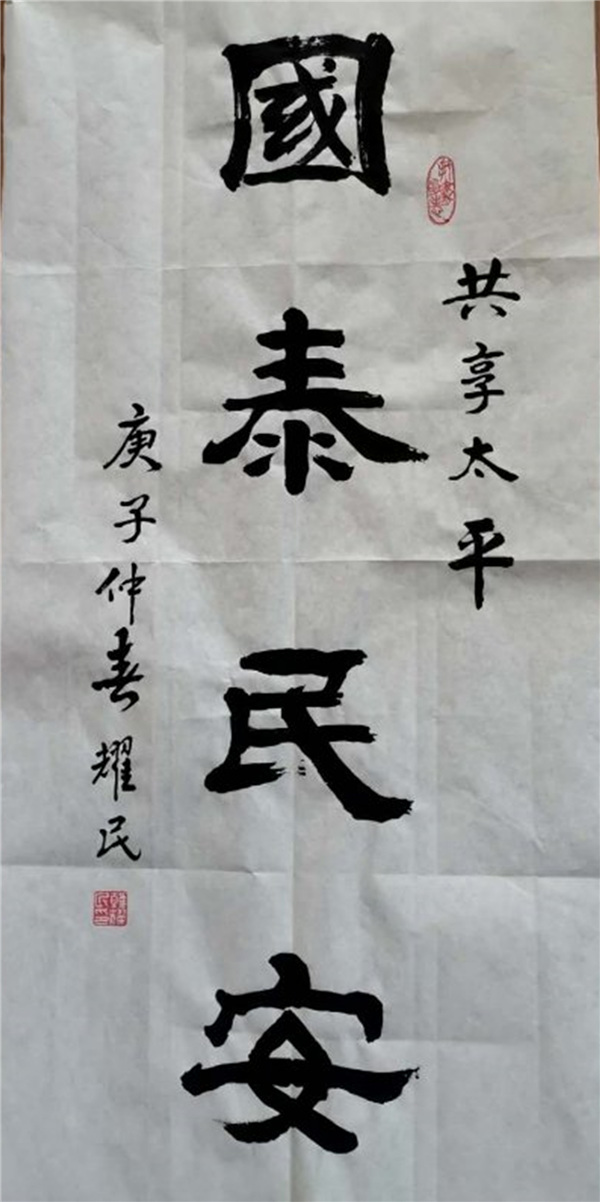 共享太平
國泰民安
庚子仲春耀民